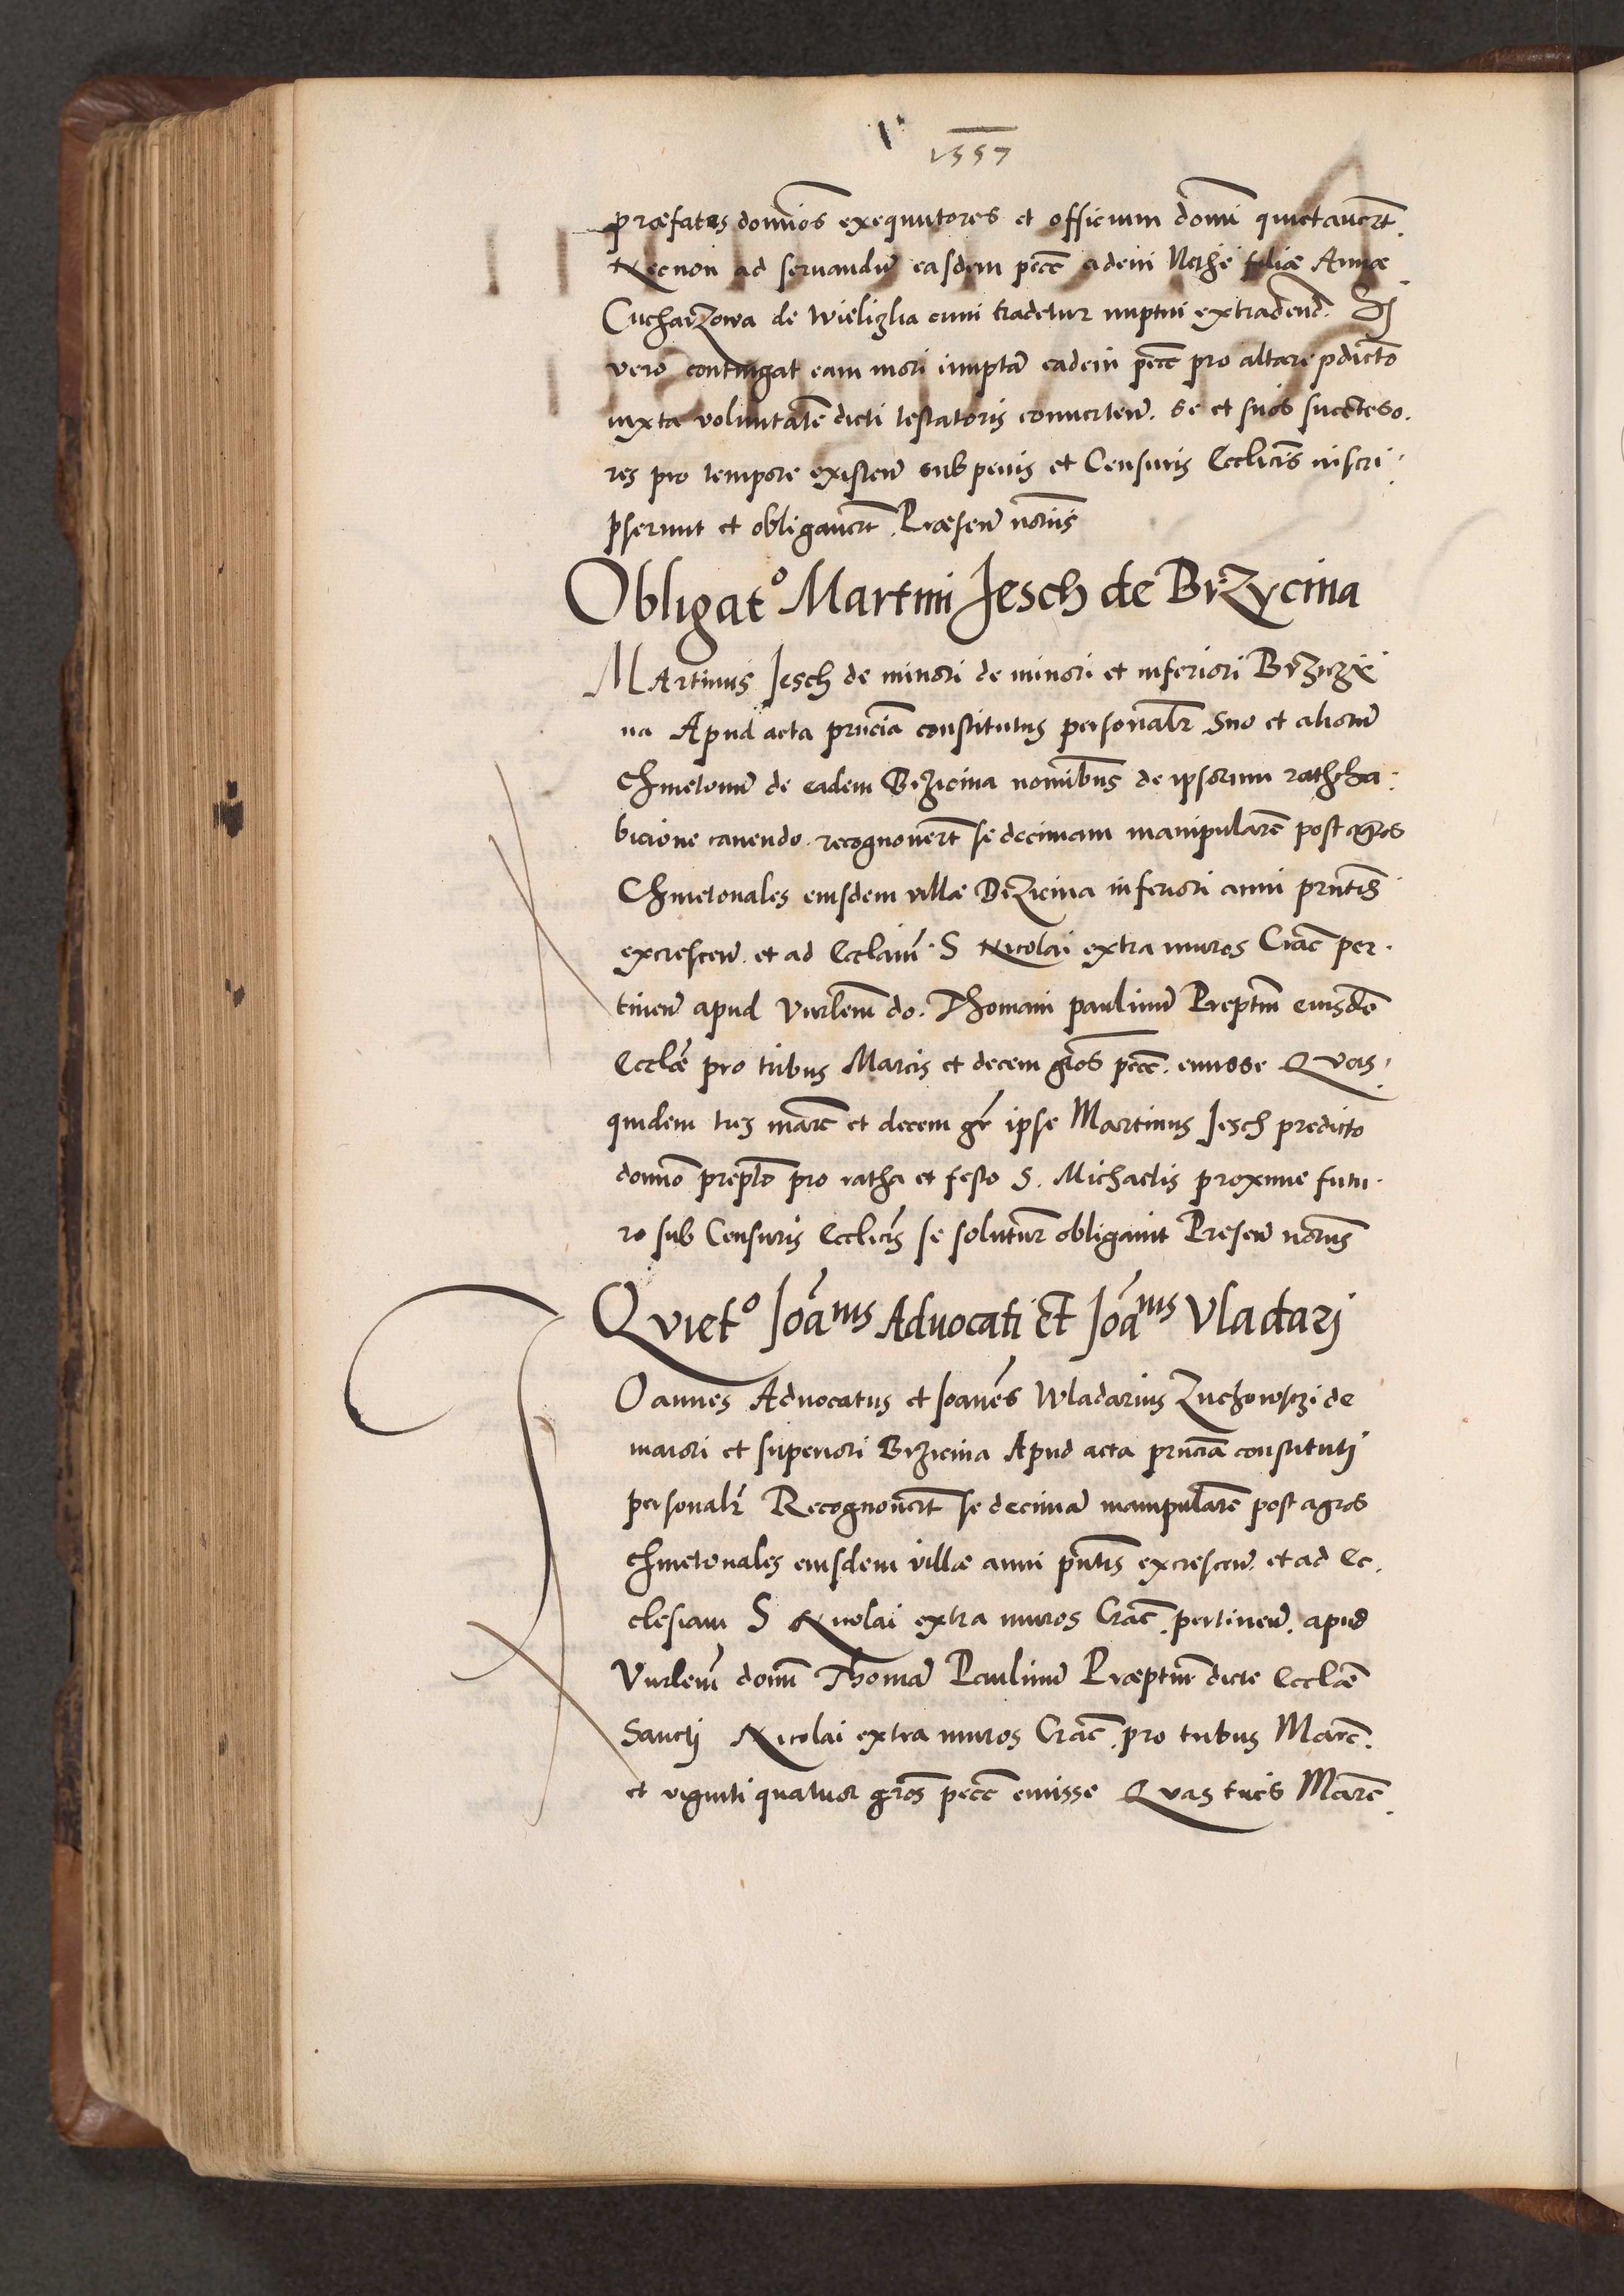 1557
præfatos domīos exequutores et officium domī quietauert̄.
Necnon ad seruandū easdem pecc̄ eidem Nethe filiæ Annæ
Cucharzowa de Wieliglia cum tradetur nuptui extradend. Si
vero contingat eam mori inuptā eadem pecc̄ pro altare pdicto
iuxta voluntatē dicti testatoris conuerten̄. se et suos succeso.
res pro tempore existen̄ sub penis et Censuris Ecclicis inscri
pserunt et obligauert̄. Præsen̄
Obligatº Martini Jesch de Brzycina
Martinus Jesch de minori de minori et inferiori Brziczi
na Apud acta prncia constitutus personalr̄ Suo et aliorū
Chmetonū de eadem Brzicina nomībus de ipsorum rathcha
bicione cauendo. recognouert̄ se decimam manipularē post agros
Chmetonales eiusdem villæ Brzicina inferiori anni prntis
excrescen̄. et ad Ecclaim. S Nicolai extra muros Crac̄ per.
tinen̄ apud do. Thomam paulinū Preptm̄ eiusdē
Ecclē pro tribus Marcis et decem gros pecc̄. emisse Quas
quidem tres marc̄ et decem gr̄ ipse Martinus Jesch predicto
domīo prepto pro ratha et festo S. Michaelis proxime futu.
ro sub Censuris Ecclicis se soluturū obligauit Presen̄
Quietº Joānis Aduocati et Joānis Vladarj
Joannes Aduocatus et Joanēs Wladarius Zuchowsczi de
maiori et superiori Brzicina Apud acta prncia constitutj
personalr̄ Recognouert̄ se decimā manipularē post agros
chmetonales eiusdem villæ anni prntis excrescen̄. et ad Ec.
clesiam S Nicolai extra muros Crac̄. pertinen̄. apud
dom̄ Thomā Paulinū Præptm̄ dicte Ecclæ
Sanctj Nicolai extra muros Crac̄. pro tribus Marc̄.
et viginti quatuor gros pecc̄ emisse Quas Marc̄.